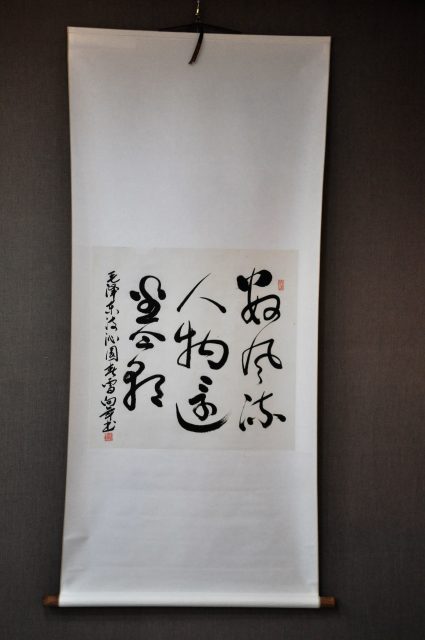 数风流
人物还
看今朝
毛泽东沁园春雪